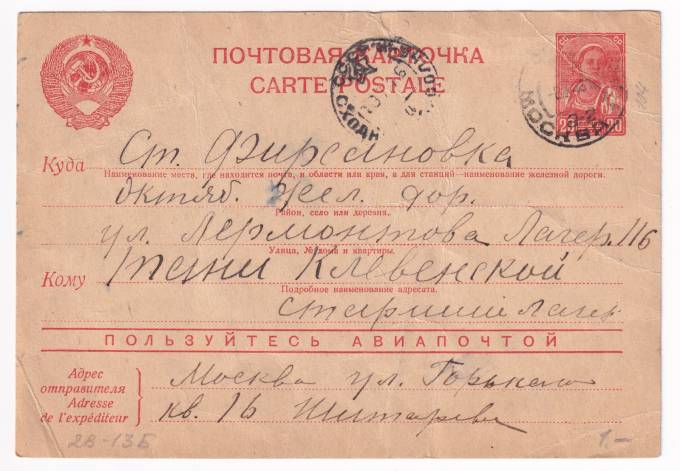 ПОЧТОВАЯ КАРТОЧКА
CARTE POSTALE
20 20
МОСКВА
СХОДН
Куда Ст. Фирсановка
Наименование места, где находится почта, и области или края, а для станций—наименование железной дороги.
Октяб. жел. дор.
Район, село или деревня.
ул. Лермонтова Лагер. 116
Улица, № дома и квартиры.
Кому Тани Клевенской
Подробное наименование адресата.
старший лагер
ПОЛЬЗУЙТЕСЬ АВИАПОЧТОЙ
Адрес отправителя
Adresse de l'expéditeur
Москва ул. Горького
кв. 16
28-13Б
1.—